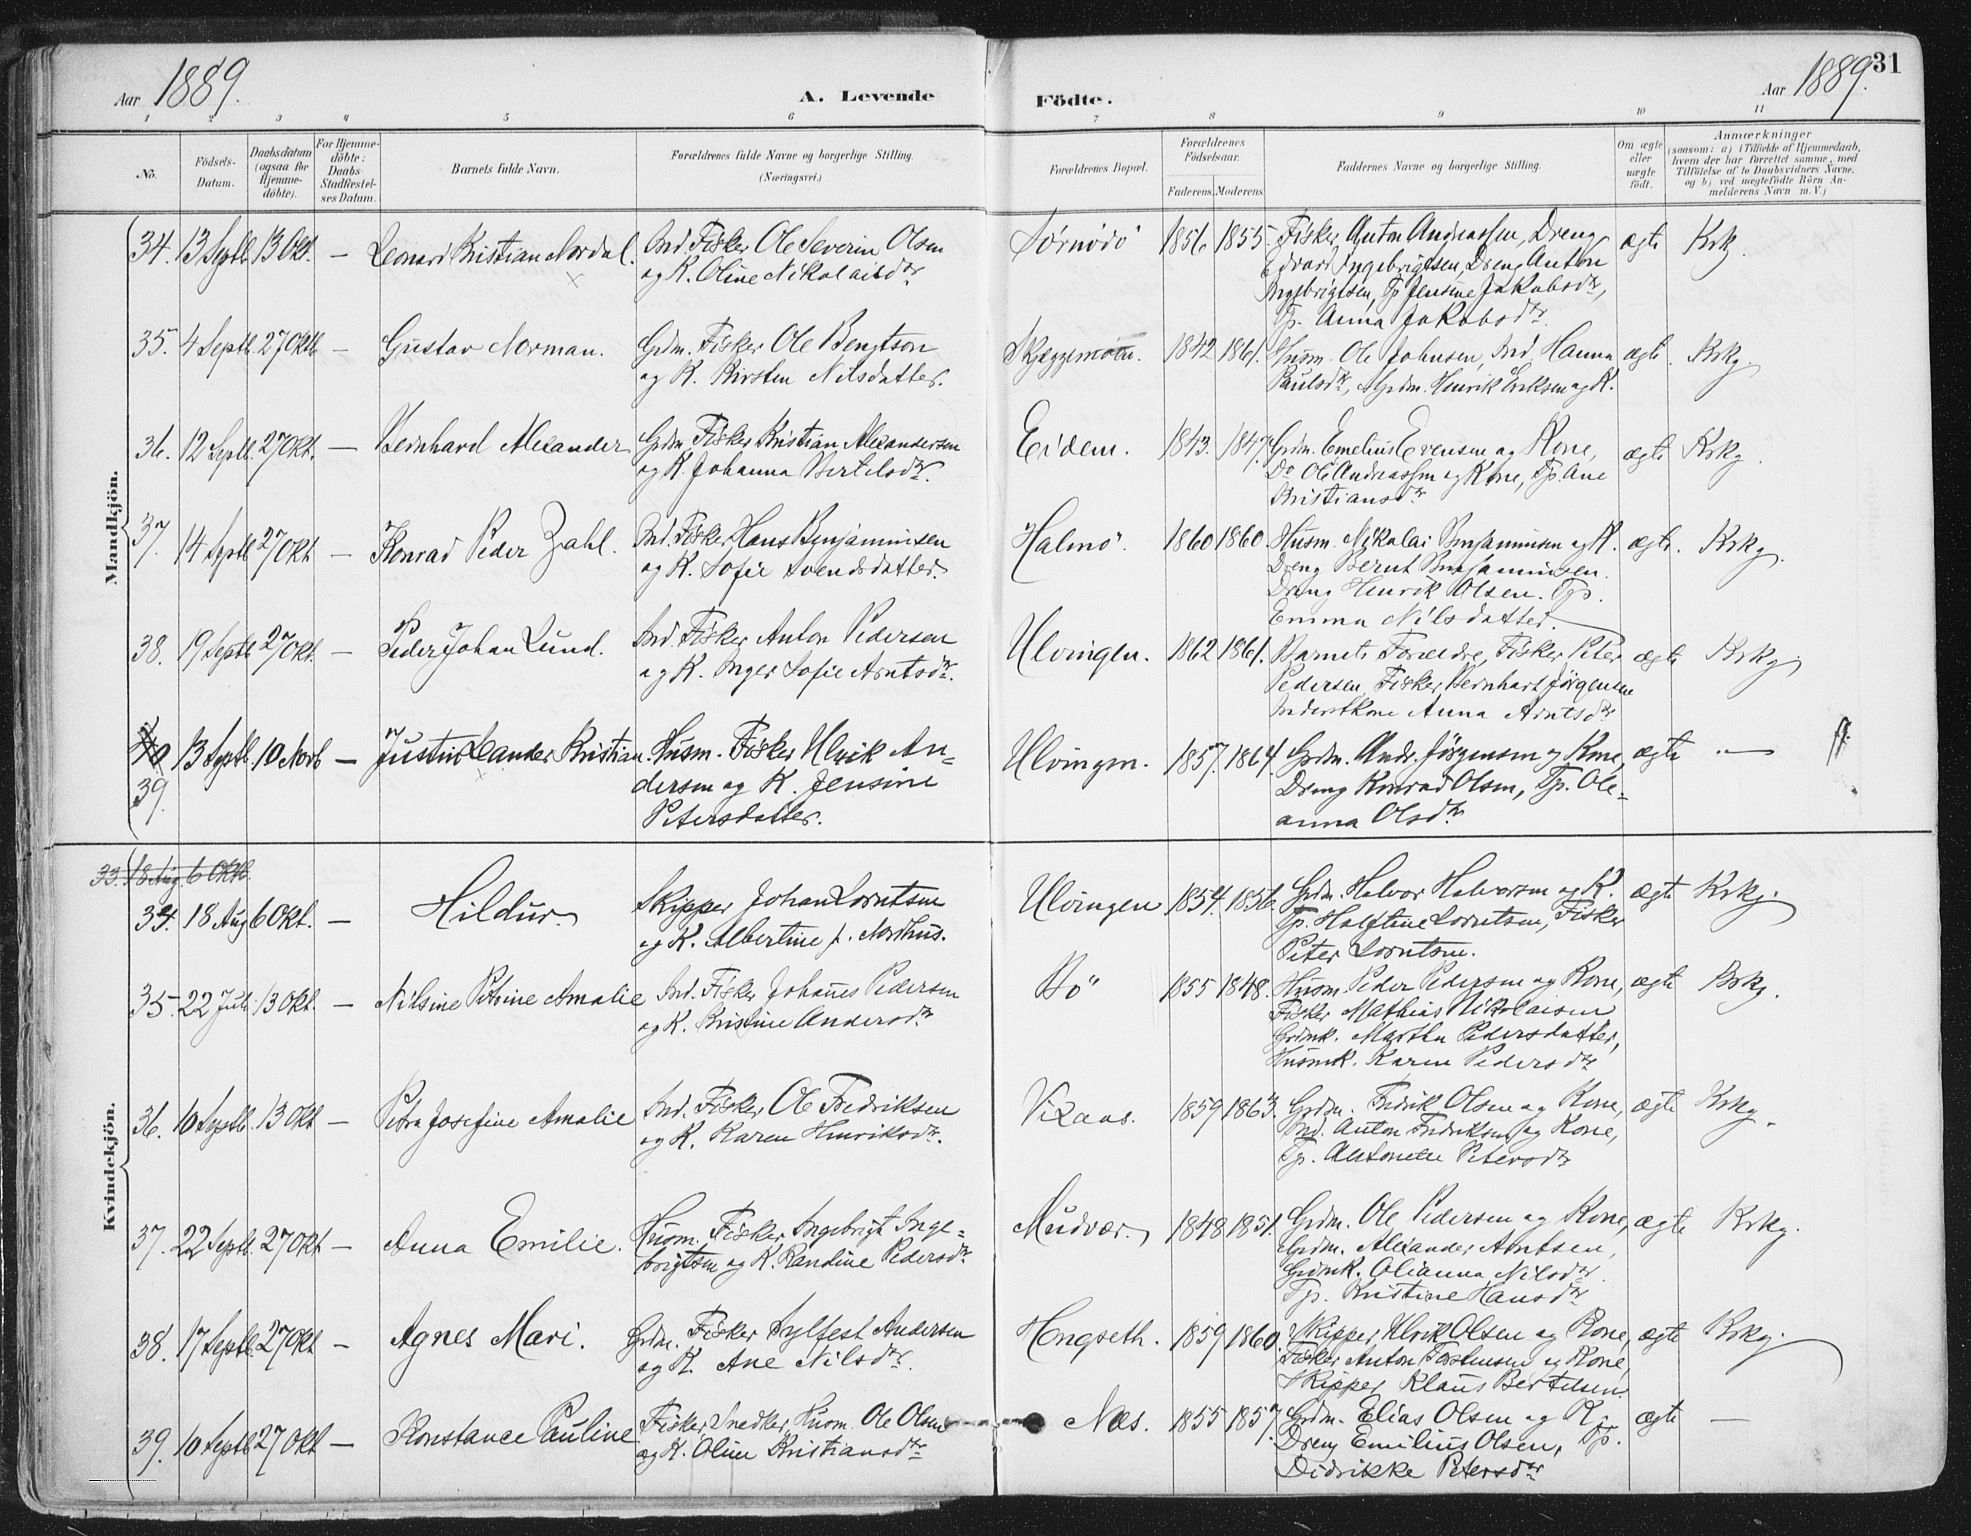 Aar 1889.
A. Levende
Födte.
Aar 1889.
31
1 2 3 4 5 6 7 8 9 10 11
No.
Födsels-
Datum.
Daabsdatum
(ogsaa for
Hjemme-
döbte).
For Hjemme-
döbte:
Daabs-
Stadfæstel-
ses Datum.
Barnets fulde Navn.
Forældrenes fulde Navne og borgerlige Stilling.
(Næringsvei.)
Forældrenes Bopæl.
Forældrenes
Födselsaar.
Faderens. Moderens.
Faddernes Navne og borgerlige Stilling.
Om ægte
eller
uægte
födt.
Anmærkninger
(saasom: a) i Tilfælde af Hjemmedaab,
hvem der har forrettet samme, med
Tilföielse af to Daabsvidners Navne,
og b) ved uægtefödte Börn An-
melderens Navn m. V.)
Mandkjön.
34. 13 Septb. 13 Okt. — Leonard Kristian Nordal.
Ind. Fisker Ole Severin Olsen
og K. Oline Nikolaisdtr.
Sörnödö 1856 1855.
Fisker Anton Andreassen, Dreng
Edvard Ingebrigtsen, Dreng Anton
Ingebrigtsen, Tp Jensine Jakobsdtr,
Tp. Anna Jakobsdtr.
ægte Krkg.
35. 4 Septb. 27 Oktb. — Gustav Norman.
Grdm. Fisker Ole Bengtson
og K. Kirsten Nilsdatter.
Skjeggemoen. 1842 1861.
Husm. Ole Johnsen, Ind. Hanna
Paulsdtr, Grdm. Henrik Eriksen og K.
ægte. Krkg.
36. 12 Septb. 27 Okt. — Bernhard Alexander
Grdm Fisker Kristian Alexandersen
og K. Johanna Bertelsdtr.
Eidem. 1843. 1847.
Grdm. Emelius Evensen og Kone,
Do Ole Andreassen og Kone, Tp. Ane
Kristiansdtr
ægte Krkg.
37. 14 Septb 27 Okt — Konrad Peder Zahl.
Ind. Fisker Hans Benjaminsen
og K. Sofie Svendsdatter.
Halmö. 1860 1860
Husm. Nikolai Benjaminsen og K.
Dreng Bernt Benjaminsen.
Dreng Henrik Olsen. Tp.
Emma Nilsdatter.
ægte. Krkg.
38. 19 Septb 27 Okt. — Peder Johan Lund.
Ind. Fisker Anton Pedersen
og K. Inger Sofie Arntsdtr.
Ulvingen. 1862 1861.
Barnets Forældre, Fisker Peter
Pedersen, Fisker Bernhart Jörgensen
Inderstkone Anna Arntsdtr
ægte Krkg.
40 13 Septb 10 Novb — Justin Leander Kristian.
39.
Husm. Fisker Ulrik An-
dersen og K. Jensine
Petersdatter.
Ulvingen. 1857. 1864.
Grdm. Andr. Jörgensen og Kone,
Dreng Konrad Olsen, Tp. Ole-
anna Olsdtr
ægte —
Kvindekjön.
33. 18 Aug. 6 Oktb.
34. 18 Aug 6 Okt. — Hildur
Skipper Johan Lorntsen
og K. Albertine f. Northus.
Ulvingen 1854. 1856.
Grdm. Halvor Halvorsen og K.
Tp. Halftine Lorntsen, Fisker
Peter Lorntsen.
ægte Krkg.
35. 22 Juli. 13 Okt. — Nilsine Petrine Amalie
Ind. Fisker Johannes Pedersen
og K. Kristine Andersdtr
Bö 1855 1848.
Husm Peder Pedersen og Kone,
Fisker Mathias Nikolaisen
Grdmk. Martha Pedersdatter,
Husmk. Karen Pedersdtr
ægte Krkg.
36. 10 Septb. 13 Okt — Petra Josefine Amalie
Ind. Fisker Ole Fredriksen
og K. Karen Henriksdtr.
Vikaas. 1859 1863.
Grdm. Fredrik Olsen og Kone,
Ind. Anton Fredriksen og Kone,
Tp. Antonette Petersdtr
ægte Krkg.
37. 22 Septb. 27 Okt — Anna Emilie.
Husm. Fisker Ingebrigt Inge-
brigtsen og K. Randine Pedersdtr
Mudvær. 1848 1851.
Grdm. Ole Pedersen og Kone,
Grdm. Alexander Arntsen,
Grdmk. Olianna Nilsdtr.
Tp. Kristine Hansdtr
ægte Krkg.
38. 17 Septb. 27 Okt — Agnes Mari.
Grdm. Fisker Sylfest Andersen
og K. Ane Nilsdtr.
Hongseth. 1859 1860.
Skipper Ulrik Olsen og Kone,
Fisker Anton Torstensen og Kone,
Skipper Klaus Bertelsen
ægte Krkg.
39. 10 Septb. 27 Okt — Konstance Pauline
Fisker, Snedker, Husm. Ole Olsen
og K. Oline Kristiansdtr
Næs. 1855 1857.
Grdm. Elias Olsen og K.
Dreng Emilius Olsen, Tp.
Didrikke Petersdtr
ægte —